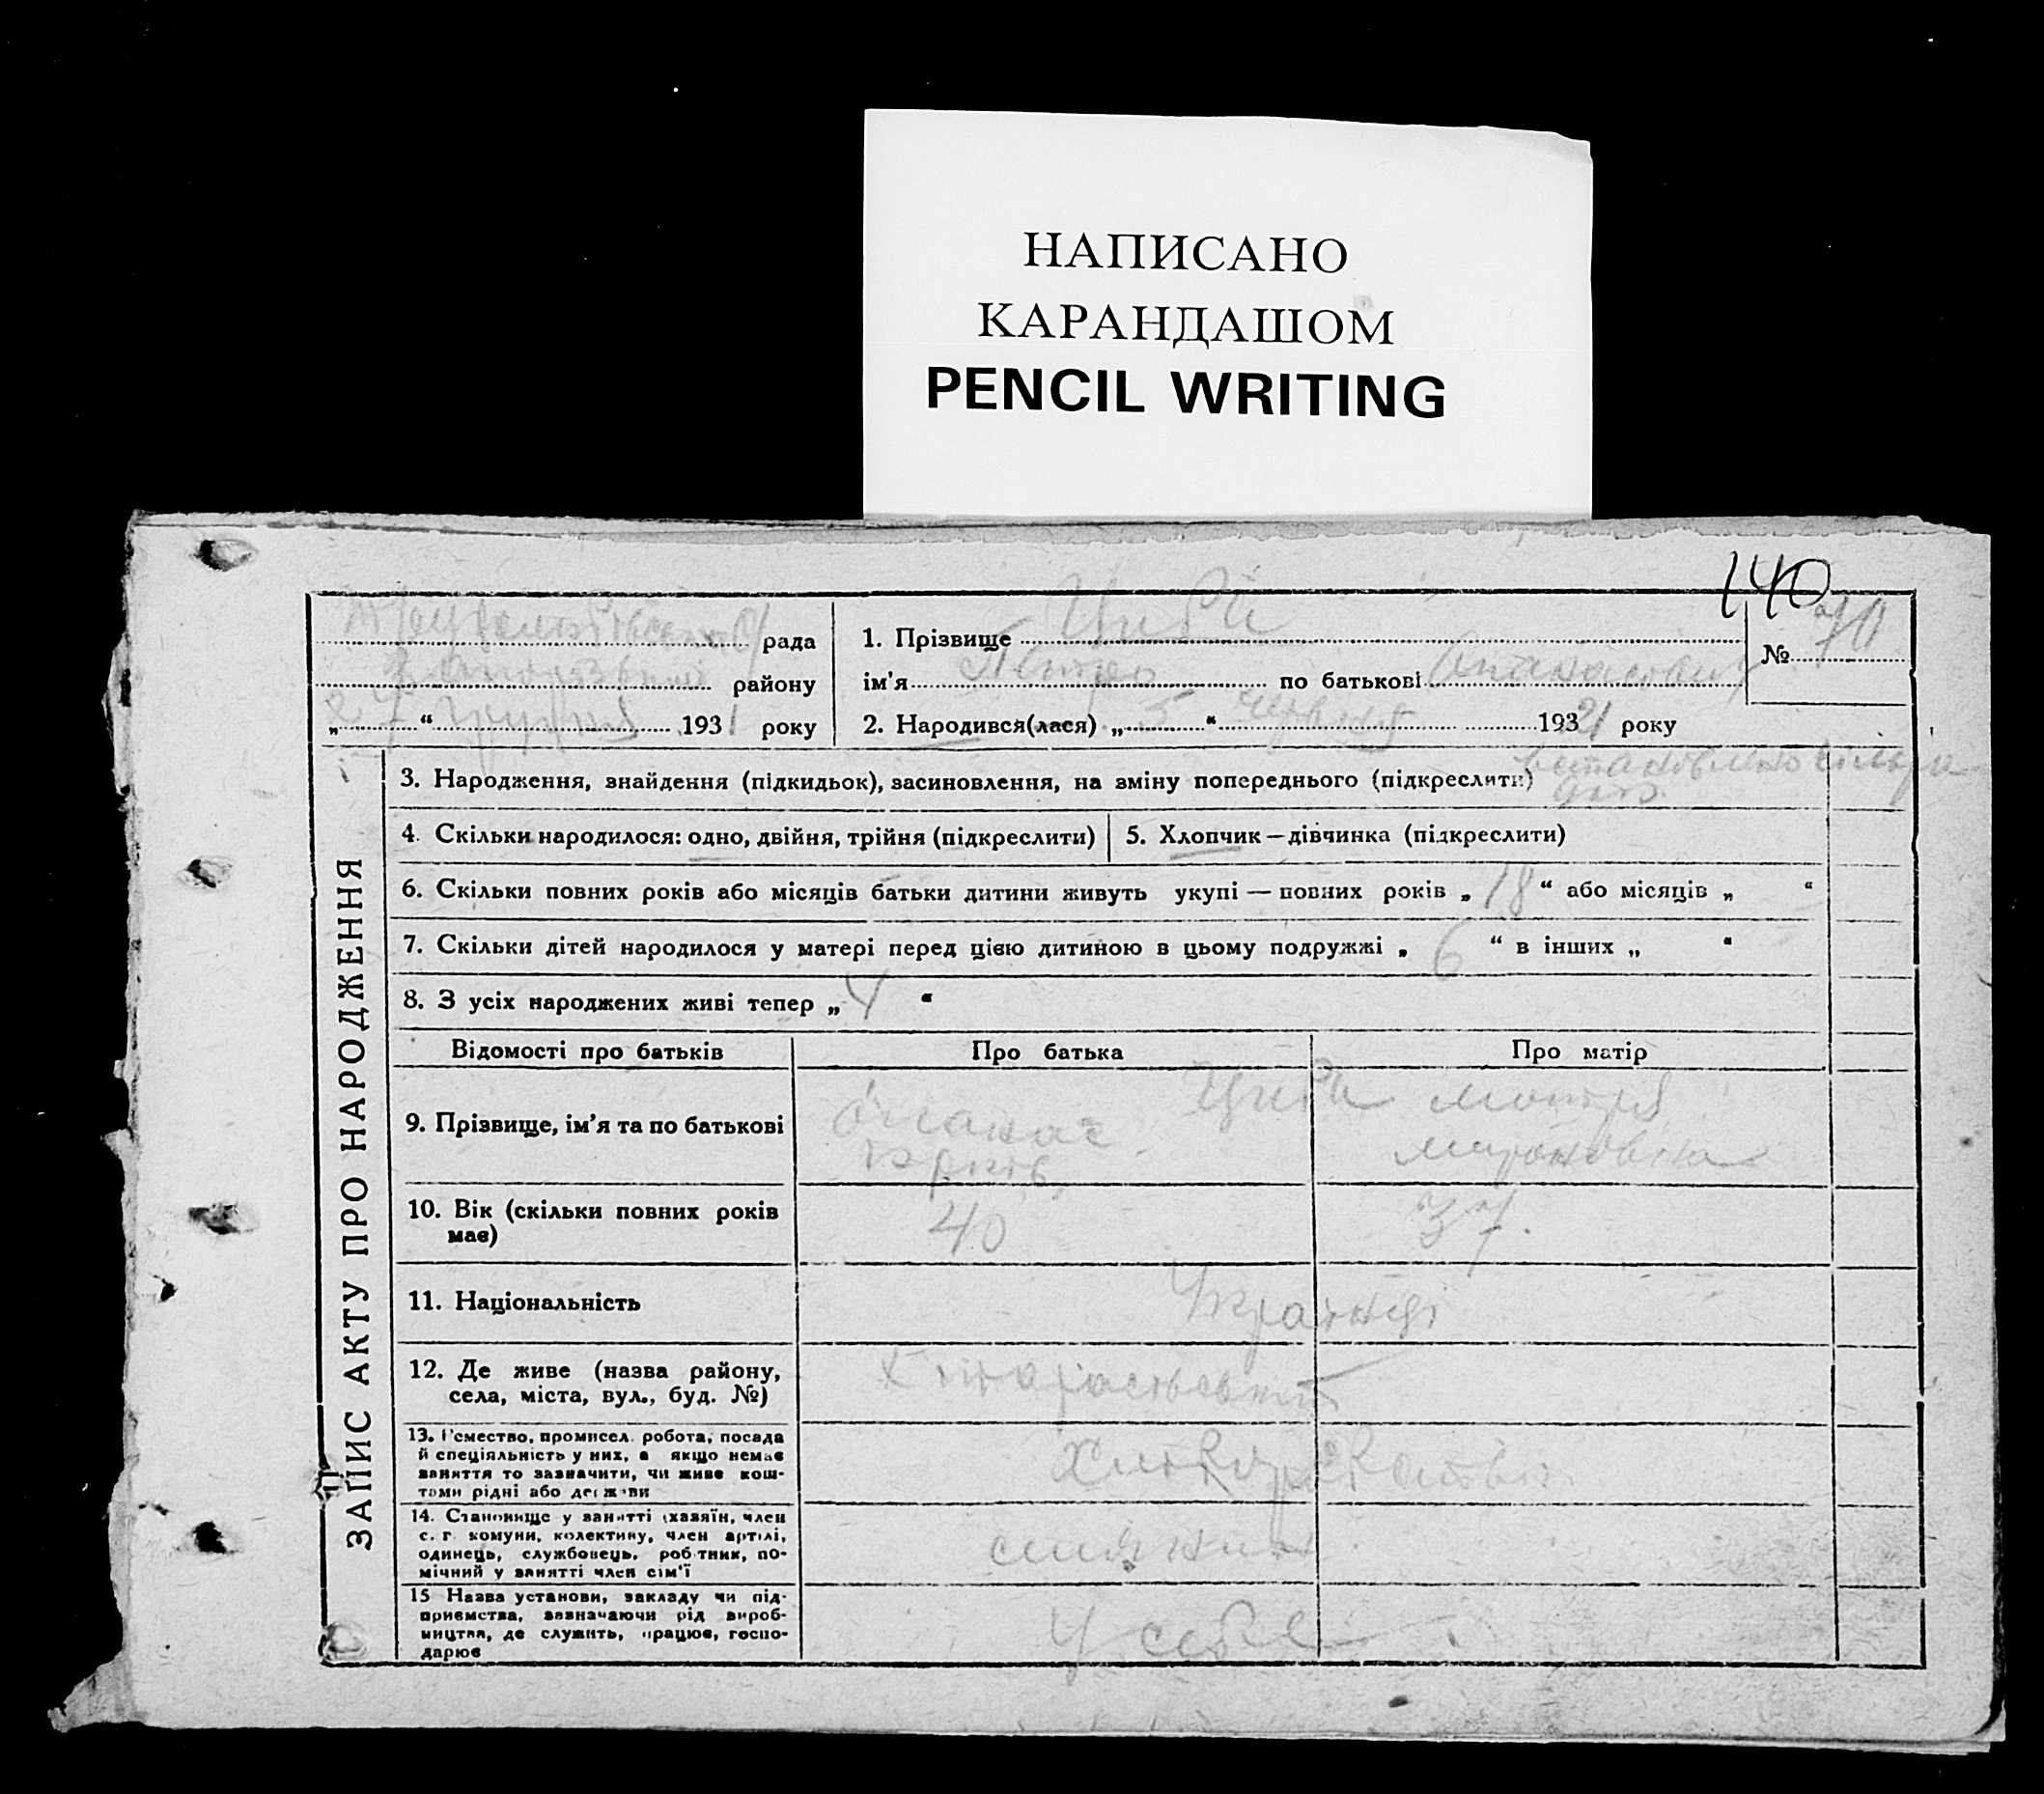 НАПИСАНО
КАРАНДАШОМ
PENCIL WRITING
140
рада
району
„ 27 “ грудня 1931 року
1. Прізвище
№ 70
ім'я Петро по батькові
2. Народився(лася) „ 5 “ 1931 року
ЗАПИС АКТУ ПРО НАРОДЖЕННЯ
3. Народження, знайдення (підкидьок), засиновлення, на зміну попереднього (підкреслити)
4. Скільки народилося: одно, двійня, трійня (підкреслити)
5. Хлопчик — дівчинка (підкреслити)
6. Скільки повних років або місяців батьки дитини живуть укупі — повних років „ 18 “ або місяців „ “
7. Скільки дітей народилося у матері перед цією дитиною в цьому подружжі „ 6 “ в інших „ “
8. З усіх народжених живі тепер „ 4 “
Відомості про батьків
Про батька
Про матір
9. Прізвище, ім'я та по батькові
Мотря
Миронівна
10. Вік (скільки повних років
має)
40
37
11. Національність
Українці
12. Де живе (назва району,
села, міста, вул., буд. №)
13. Ремество, промисел, робота, посада
й спеціяльність у них, а якщо немає
заняття то зазначити, чи живе кош-
тами рідні або держави
Хліборобство
14. Становище у занятті (хазяїн, член
с. г. комуни, колективу, член артілі,
одинець, службовець, робітник, по-
мічний у занятті член сім'ї
15 Назва установи, закладу чи під-
приємства, зазначаючи рід вироб-
ництва, де служить, працює, госпо-
дарює
У себе